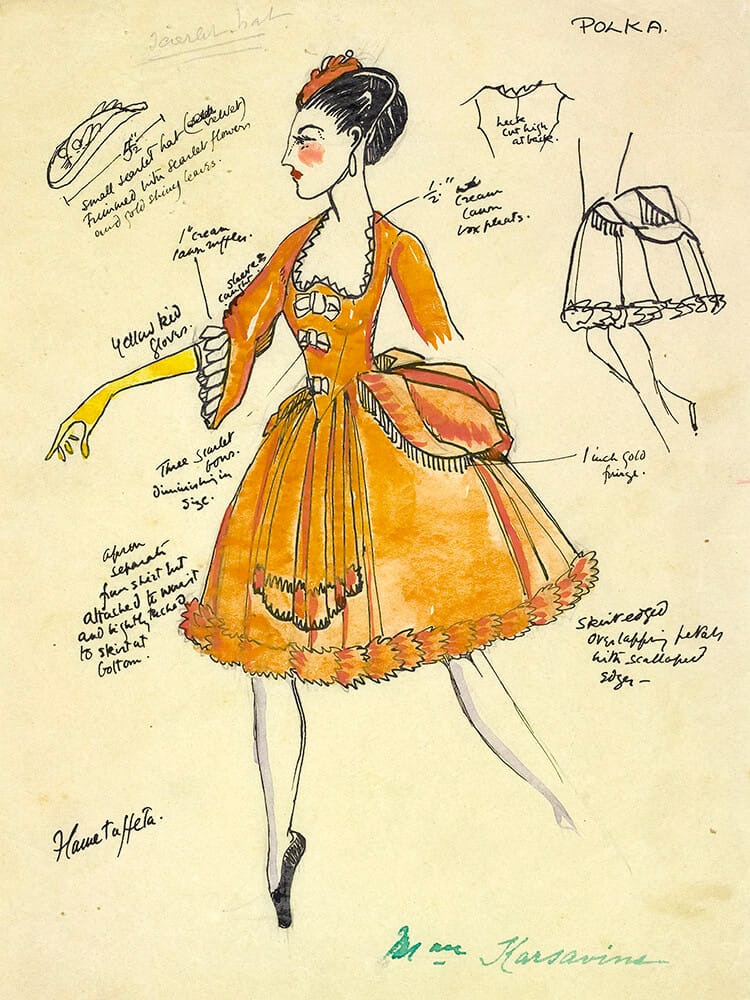 Scarlet hat
POLKA.
small scarlet hat (velvet)
Trimmed with scarlet flowers
and gold shiny leaves.
4½"
neck
cut high
at back.
½"
cream
lawn
box pleats.
1" cream
lawn ruffles.
sleeves
caught.
yellow kid
gloves.
Three scarlet
bows.
Diminishing in
size.
1 inch gold
fringe.
apron
separate
from skirt but
attached to waist
and lightly tacked
to skirt at
bottom.
Skirt edged
overlapping petals
with scalloped
edges —
Flame taffeta.
Karsavina